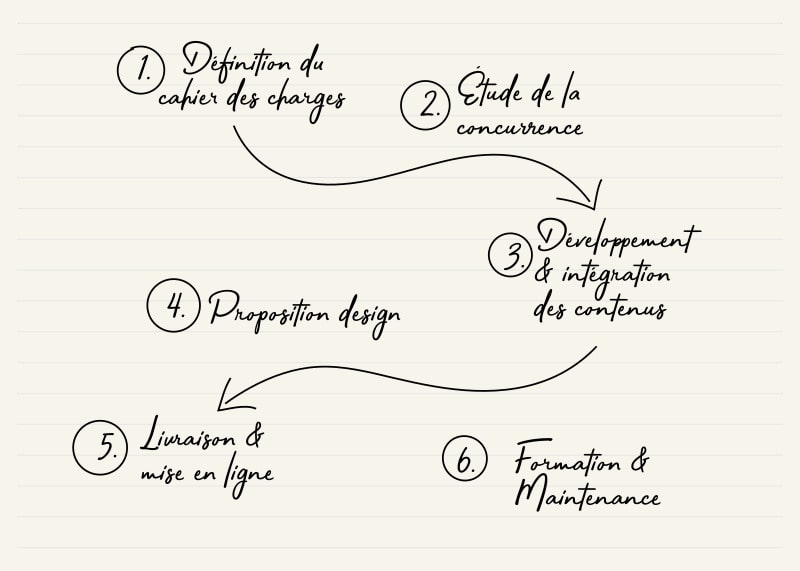 1. Définition du
cahier des charges
2. Étude de la
concurrence
3. Développement
& intégration
des contenus
4. Proposition design
5. Livraison &
mise en ligne
6. Formation &
Maintenance